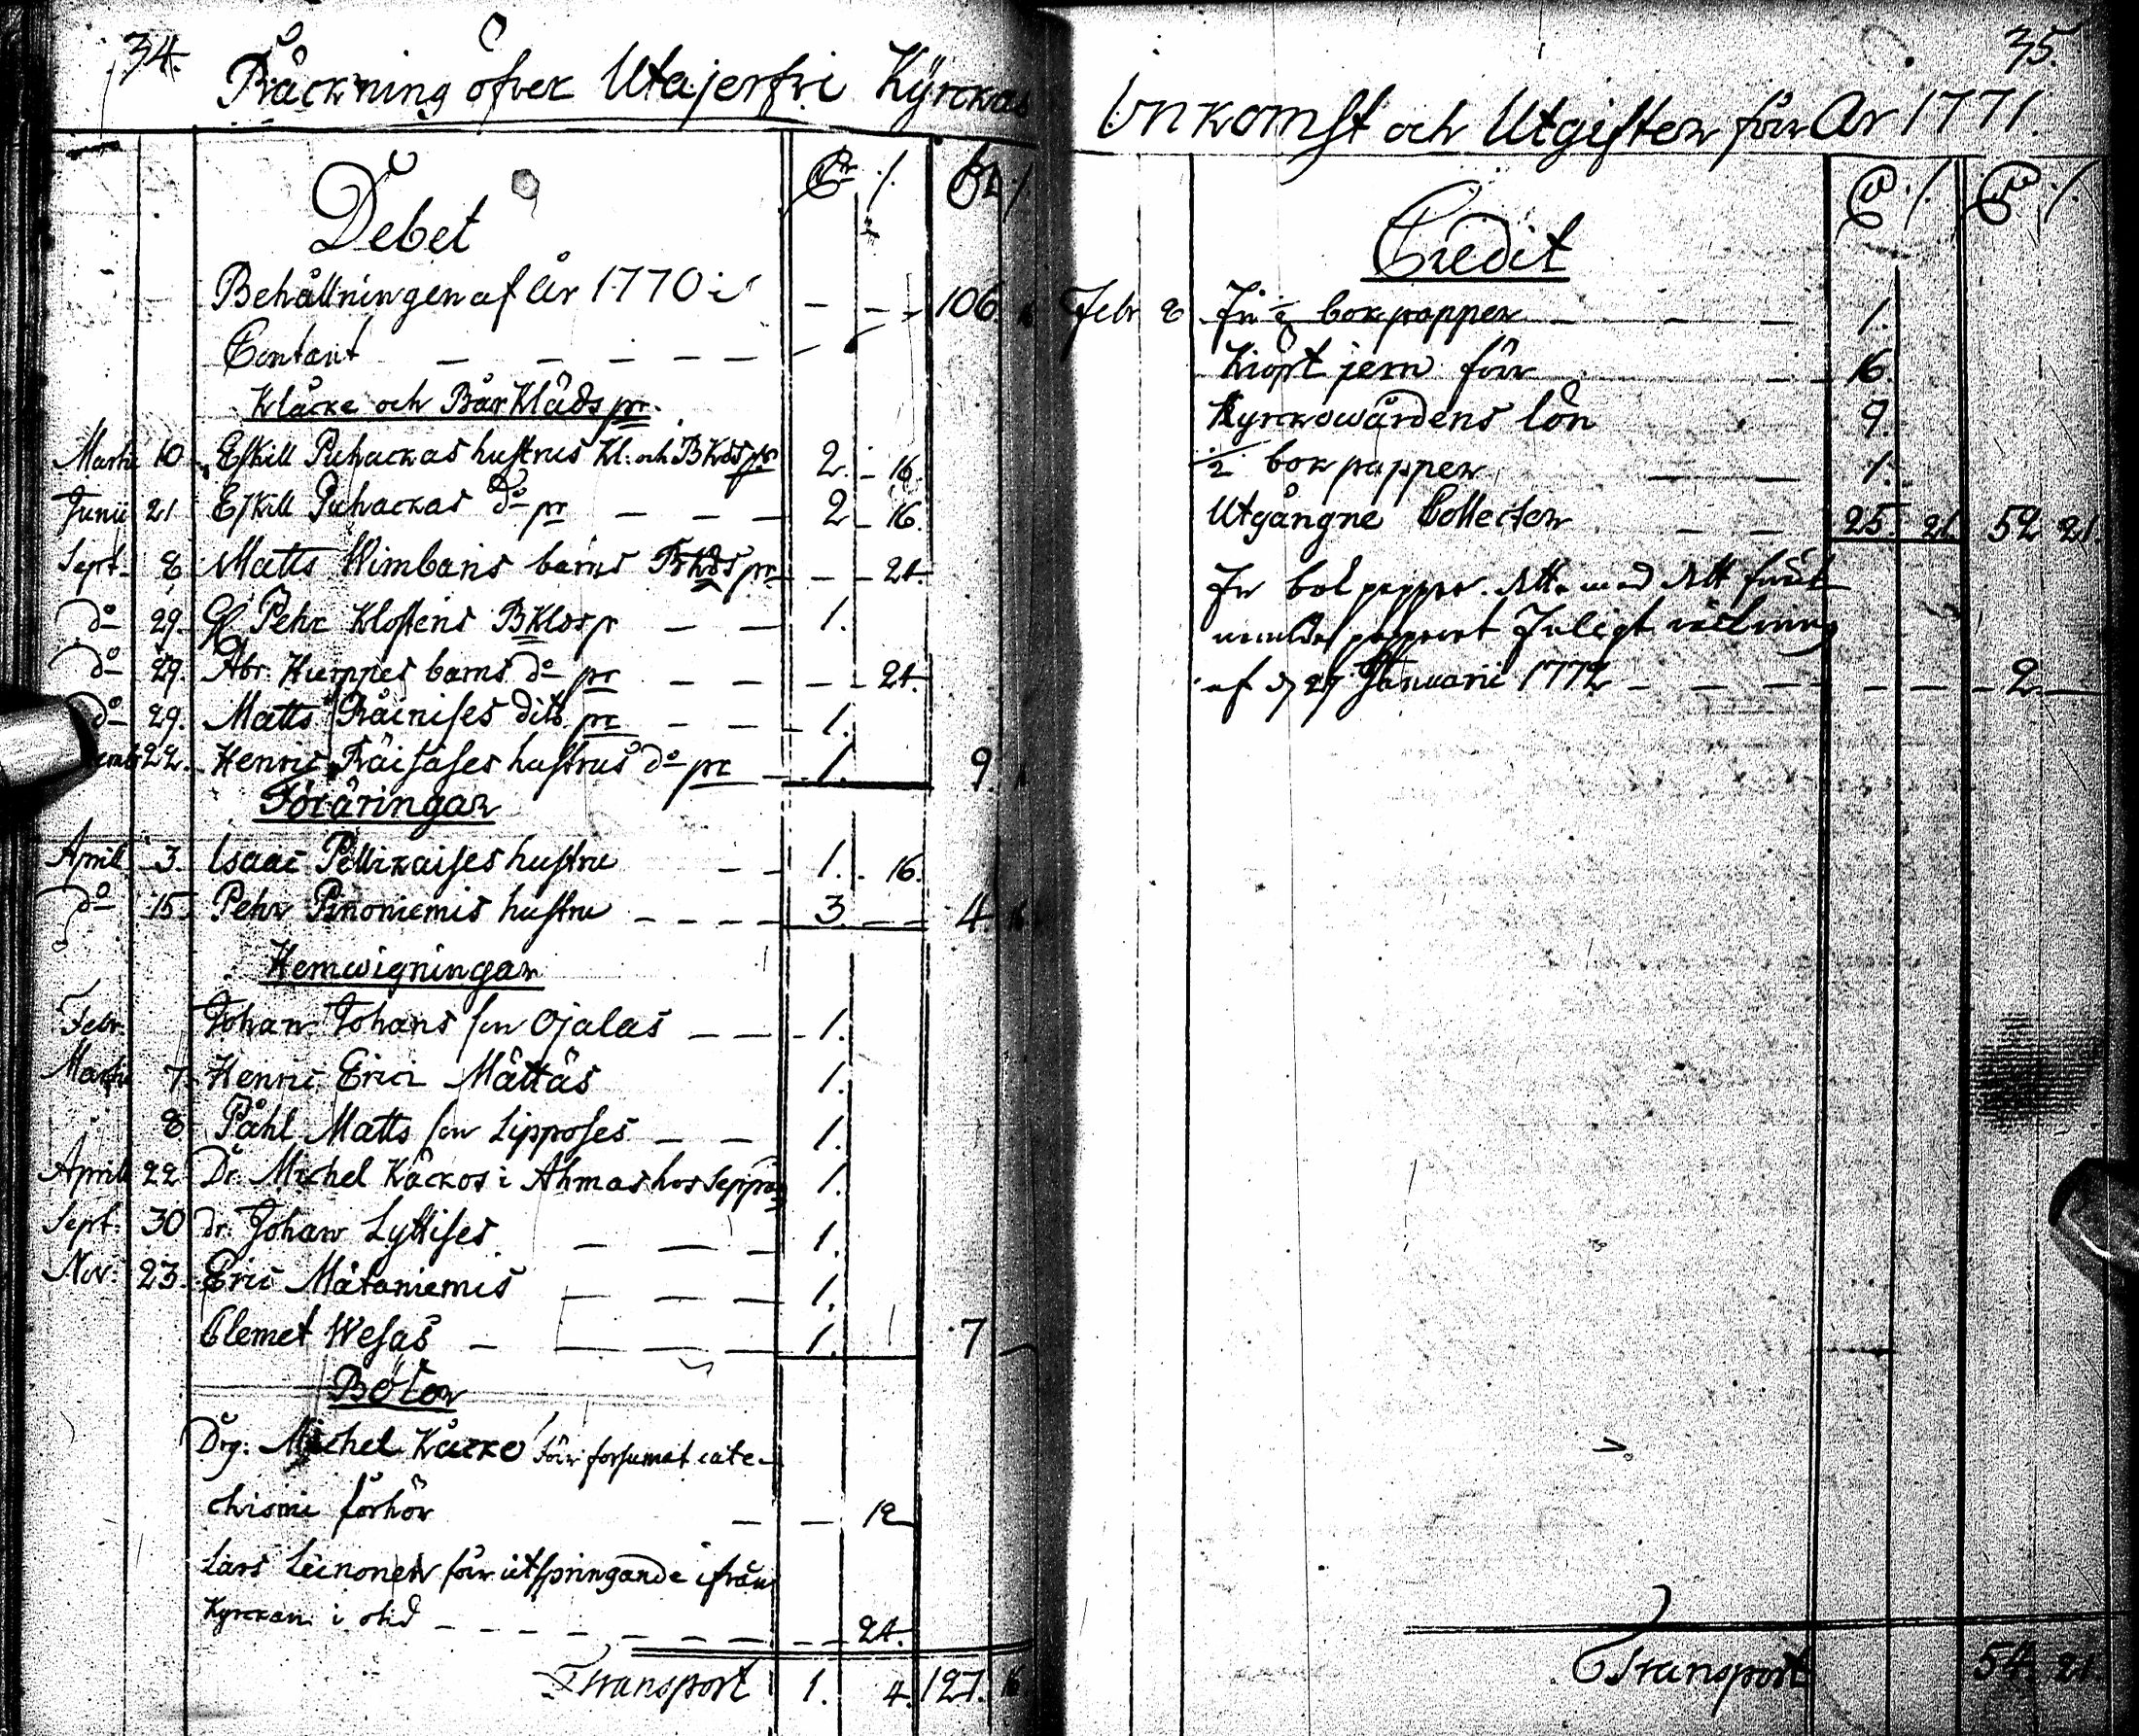 34.
Räckning öfver Utajerfvi Kyrckas
Debet
Behållningen af År 1770 i — — 106.
Contant — — — — —
Klåcke och Bår Kläds pr.
Martii 10 Eskill Puhackas hustrus Kl: och B Kds pr 2. 16
Junii 21 Eskill Puhackas do pr — — — 2 16.
Sept. 8 Matts Kimbaris barns pr — — 24.
do 29. Pehr Klofsens BKlds pr — — 1.
do 29. Abr. barns do pr — — — — 24.
do 29. Matts Räinises dito pr — — 1.
22. Henric Räisäses hustrus do pr — 1. 9.
Föräringar
April 3. Isaac Pellikaises hustru — — 1. 16.
do 15. Pehr hustru — — — — 3. — — 4. 16.
Hemwigningar
Febr. Johan Johans son Ojalas — — — 1.
Martii 7. Henric Erics Mättäs 1.
8 Påhl Matts son Lipposes — — 1.
April 22 Dr. Michel Kåckos i Ahmas hos Seppäs 1.
Sept. 30 dr. Johan Lyttises — — — 1.
Nov. 23. Eric Mätäniemis — — — 1.
Clemet Wesas — — — — 1. 7 —
Böter
Drg. Michel Kåcko för försumat cate-
chismi förhör — — 12
Lars Leinonen för utspringande ifrån
Kyrckan i otid — — — — — — — — 24.
Transport 1. 4. 127. 16
35.
Inkomst och Utgifter för År 1771.
Credit
Febr 8 bok papper — — — 1.
Kiöpt jern för — — 16.
Kyrckowärdens lön 9.
1/2 bok papper — — 1.
Utgångne Collecter — — 25. 21. 52 21.
af d. 27 Januarii 1772 — — — — — — 2 —
Transport 54. 21.